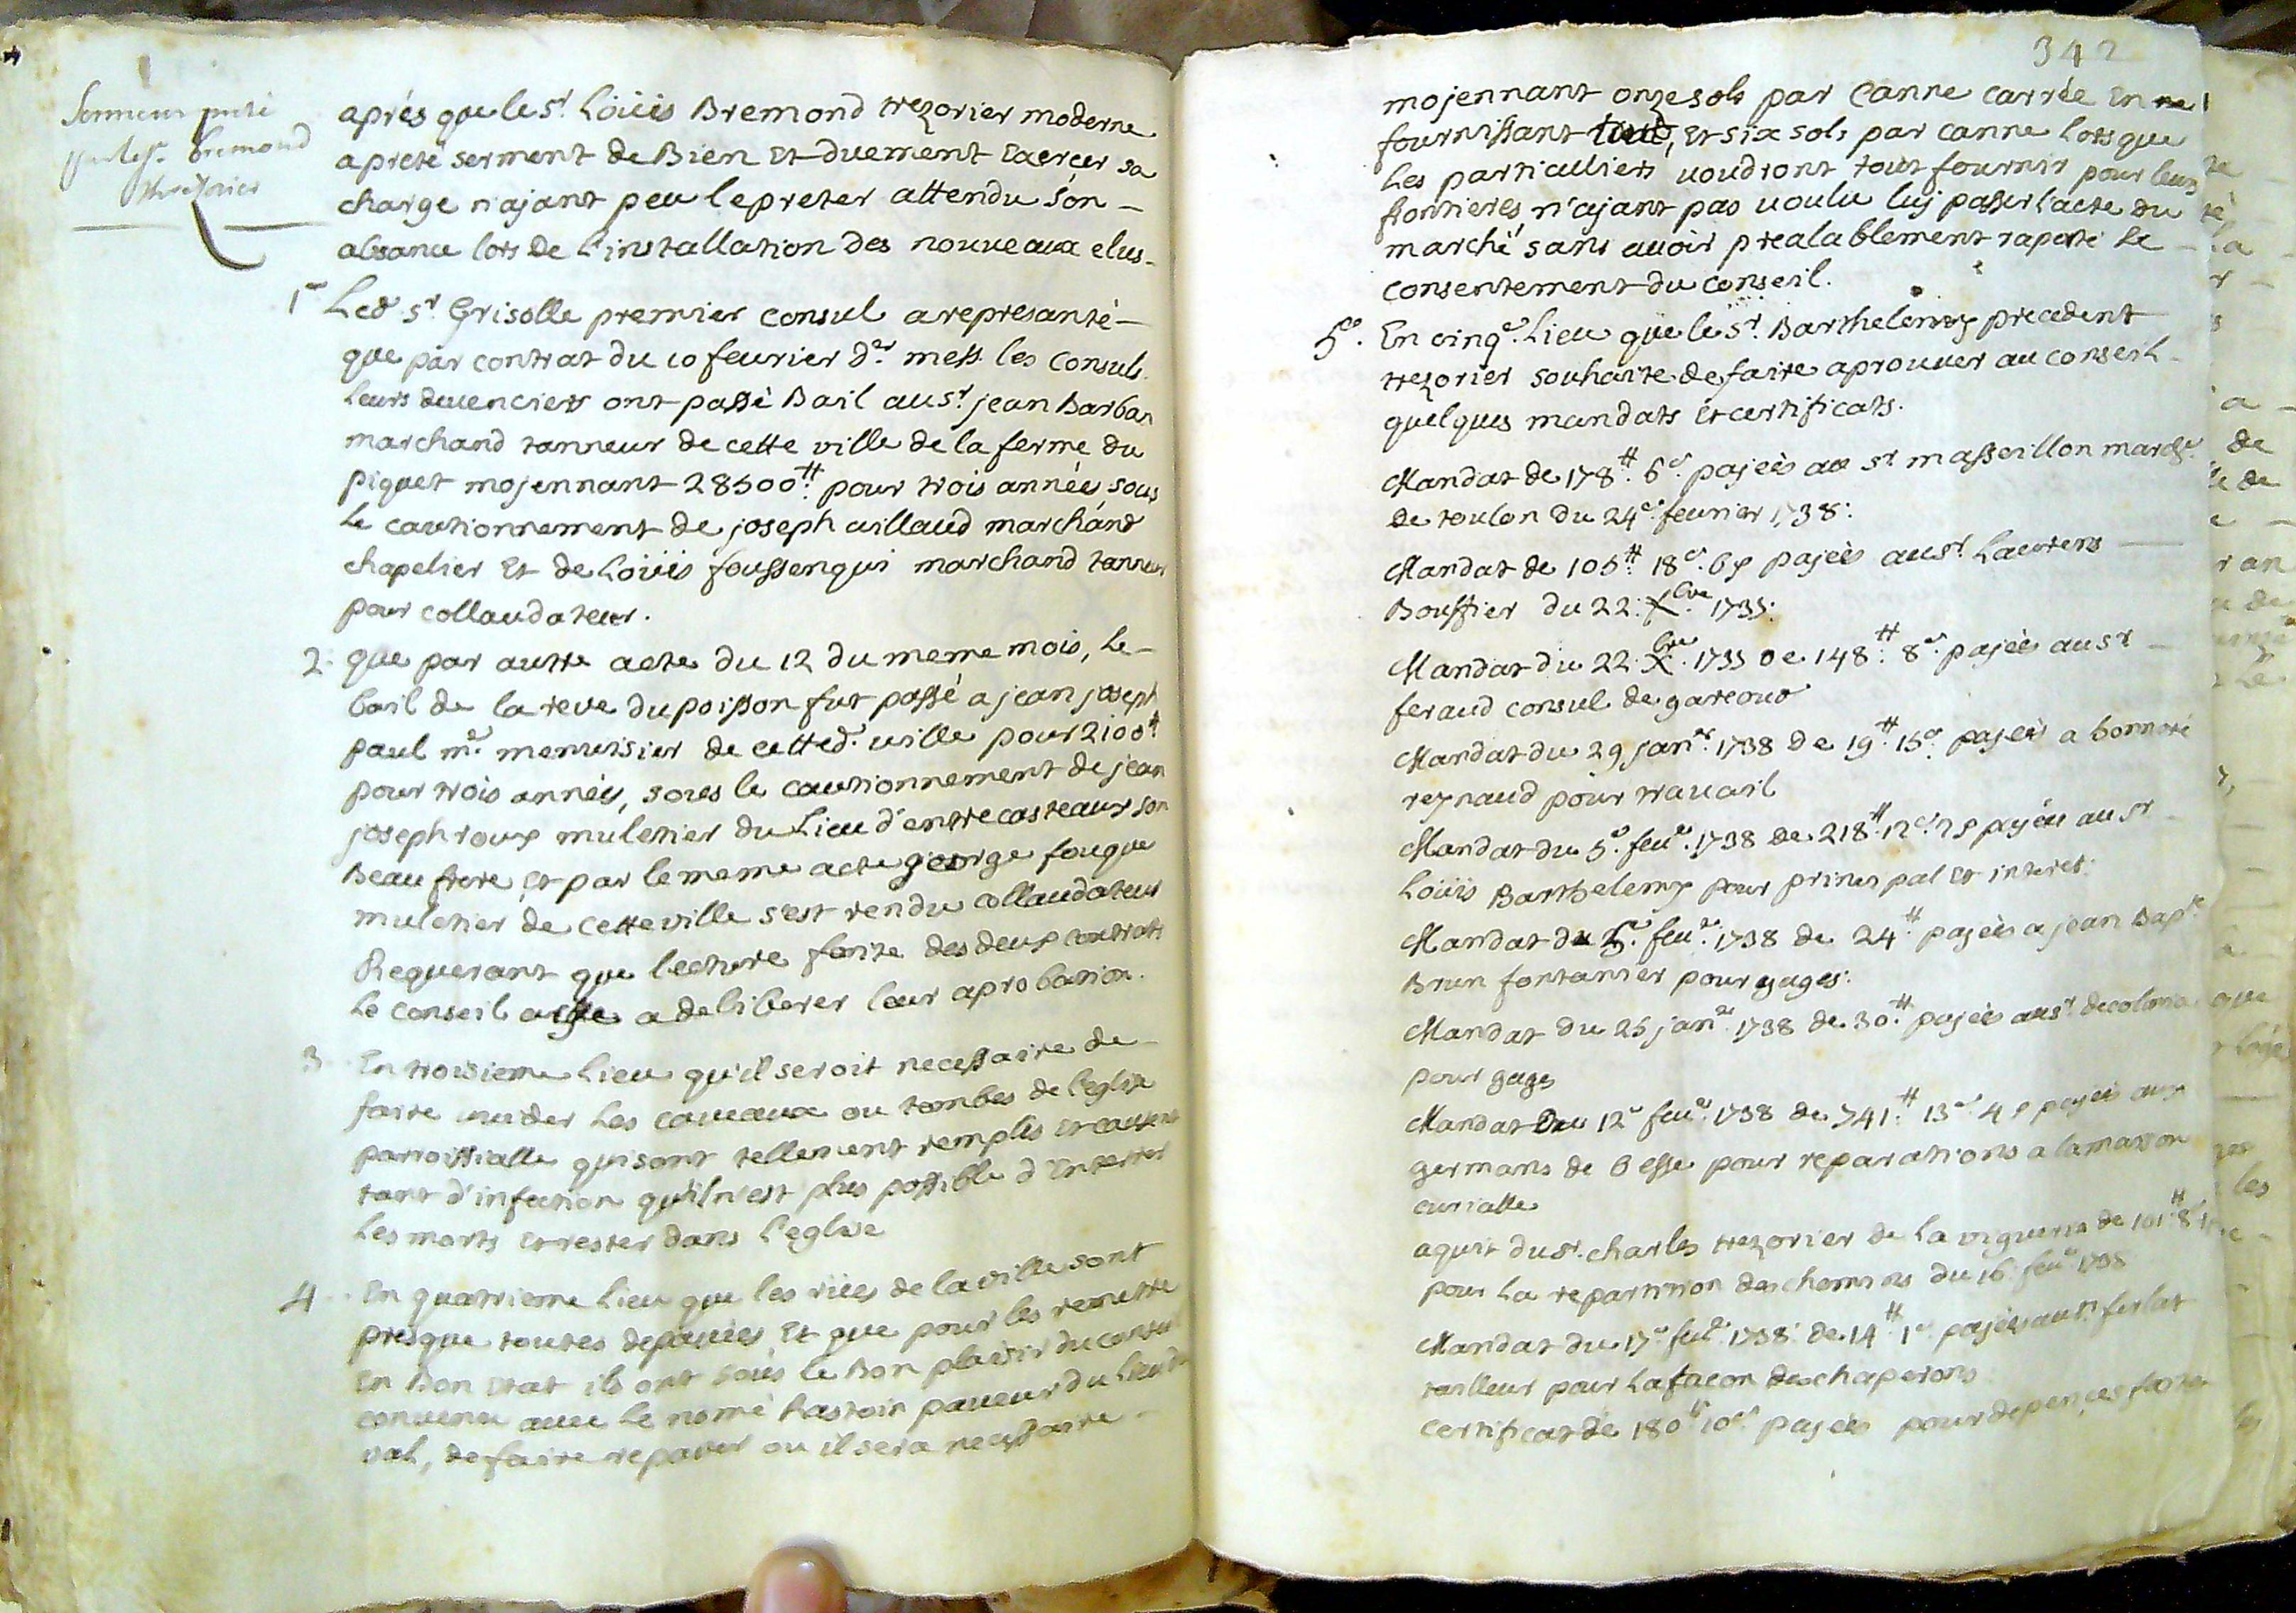 Serment preté
par le sr. bremond
threzorier
aprés que le sr. Loüis Bremond trezorier moderne
a preté serment de Bien Et duement Exercer sa
charge n'ajant peu le preter attendu son
absance lors de l'installation des nouveaux elus
1° Led. sr. Grisolle premier consul a represanté
que par contrat du 10 feurier d.er mess. les consuls
leurs deuenciers ont passé Bail au sr. jean Barban
marchand tanneur de cette ville de la ferme du
piquet mojennant 28500# pour trois années sous
le cautionnement de joseph aillaud marchand
chapelier Et de Loüis foussenqui marchand tanneur
pour collaudateur.
2. que par autre acte du 12 du meme mois, le
bail de la reve du poisson fut passé a jean joseph
paul m.e menuisier de cetted. uille pour 2100#
pour trois années, sous le cautionnement de jean
joseph roux muletier du Lieu d'entrecasteaux son
Beau frere, Et par le meme acte george fouque
muletier de cette ville s'est rendu collaudateur
Requerant que lecture faite des deux contrats
Le conseil aije a deliberer leur aprobation.
3 En troisieme Lieu qu'il seroit necessaire de
faire uuider Les caueaux ou tombes de l'eglise
parroissialle qui sont tellement remplis Et causent
tant d'infection qu'il n'est plus possible d'Enterrer
Les morts Et rester dans l'eglise
4. En quatrieme Lieu que les rües de la ville sont
presque toutes depauées Et que pour les remettre
En bon Etat ils ont sous le bon plaisir du conseil
conuenu auec le nomé hastoin paueur du Lieu du
val, de faire repauer ou il sera necessaire
342
mojennant onze sols par canne carrée En
fournissant tout, Et six sols par canne Lors que
Les particulliers uoudront tout fournir pour leurs
frontieres n'ajant pas uoulu luj passer l'acte du
marché sans auoir prealablement raporté Le
consentement du conseil.
5°. En cinq.e Lieu que le sr. Barthelemy precedent
trezorier souhaite de faire aprouuer au conseil
quelques mandats Et certificats.
Mandat de 178# 6s. pajées au sr massillon march.d
de toulon du 24e. feurier 1738.
Mandat de 105# 18s. 6d pajées au sr. Laurens
Bouffier du 22. Xbre 1735.
Mandat du 22. Xbre. 1735 de 148# 8s. pajées au sr
feraud consul de gareoud
Mandat du 29 jan.er 1738 de 19# 15s. pajées a bonnoré
reynaud pour trauail
Mandat du 5e. feu.er 1738 de 218# 12s. 2d pajées au sr
Loüis Barthelemy pour principal Et interet.
Mandat du 5e. feu.er 1738 de 24# pajées a jean Bap.te
Brun fontanier pour gages.
Mandat du 25 jan.er 1738 de 30# pajées au sr. decolonia
pour gages
Mandat Du 12e feu.er 1738 de 741# 13s 4d pajées aux
germans de besse pour reparations a la maison
curialle
aquit du sr. charles trezorier de La viguerie de 101# 8s
pour La repartition des chemins du 16 feu.er 1738
Mandat du 17e feu.er 1738. de 14# 1s pajées au sr. ferlat
tailleur pour La façon des chaperons
certificat de 180# 10s. pajées pour depenses faites